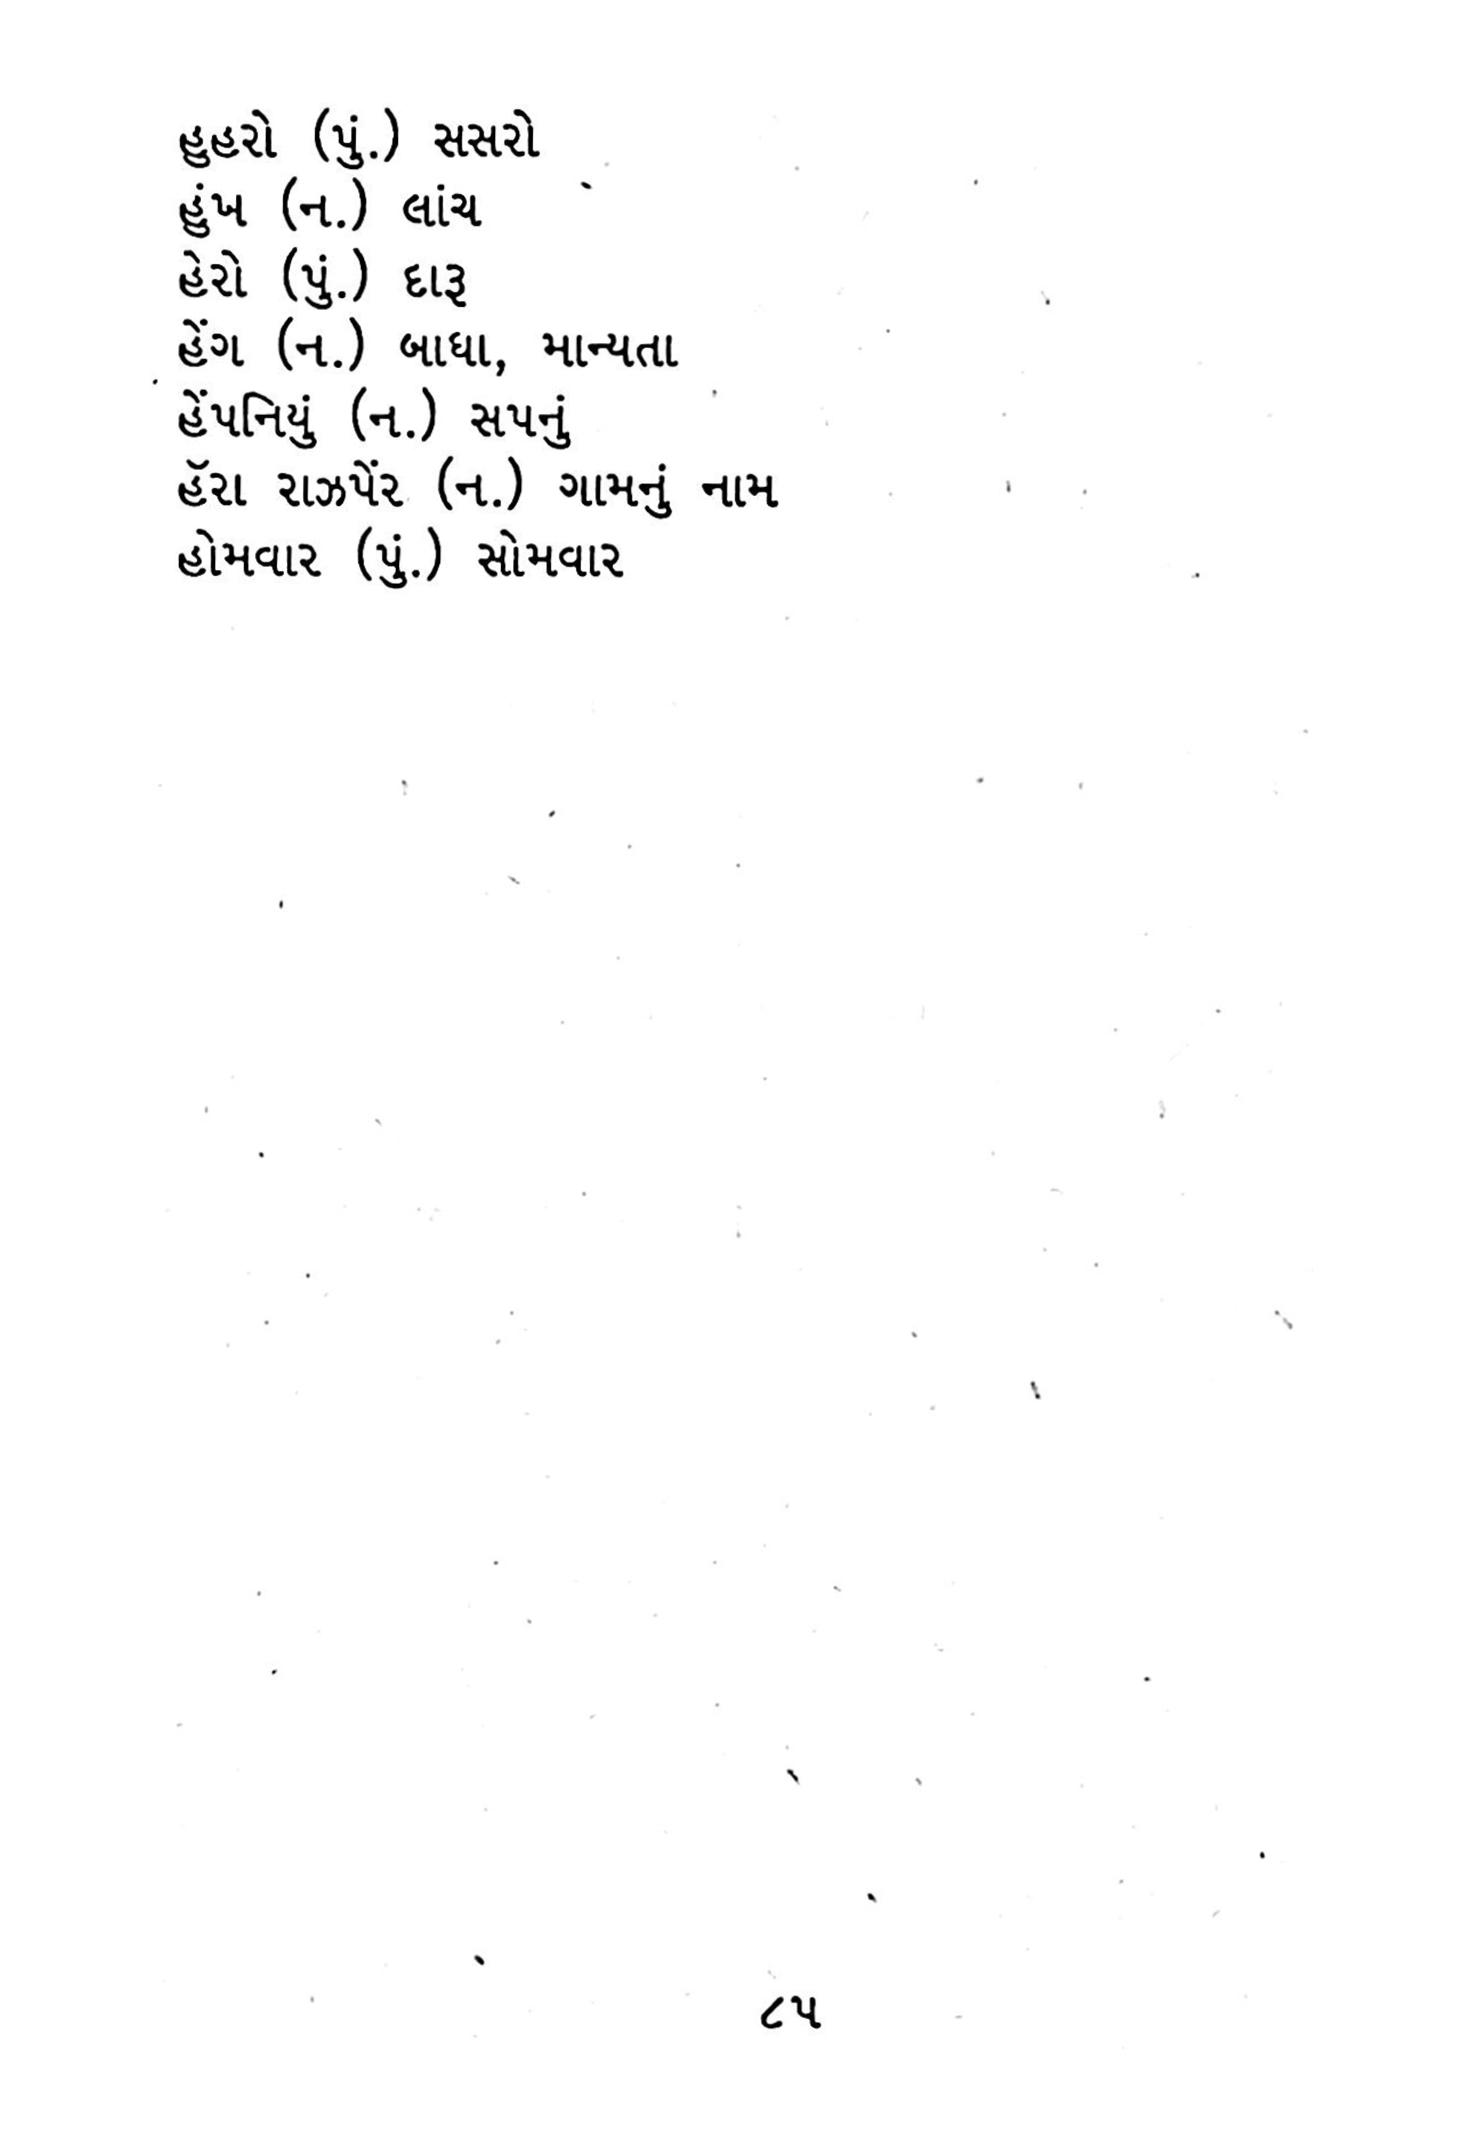 હુહરો (પું.) સસરો
હુંખ (ન.) લાંચ
હેરો (પું.) દારૂ
હેંગ (ન.) બાધા, માન્યતા
હેંપનિયું (ન.) સપનું
હૅરા રાઝપેંર (ન.) ગામનું નામ
હોમવાર (પું.) સોમવાર
૮૫